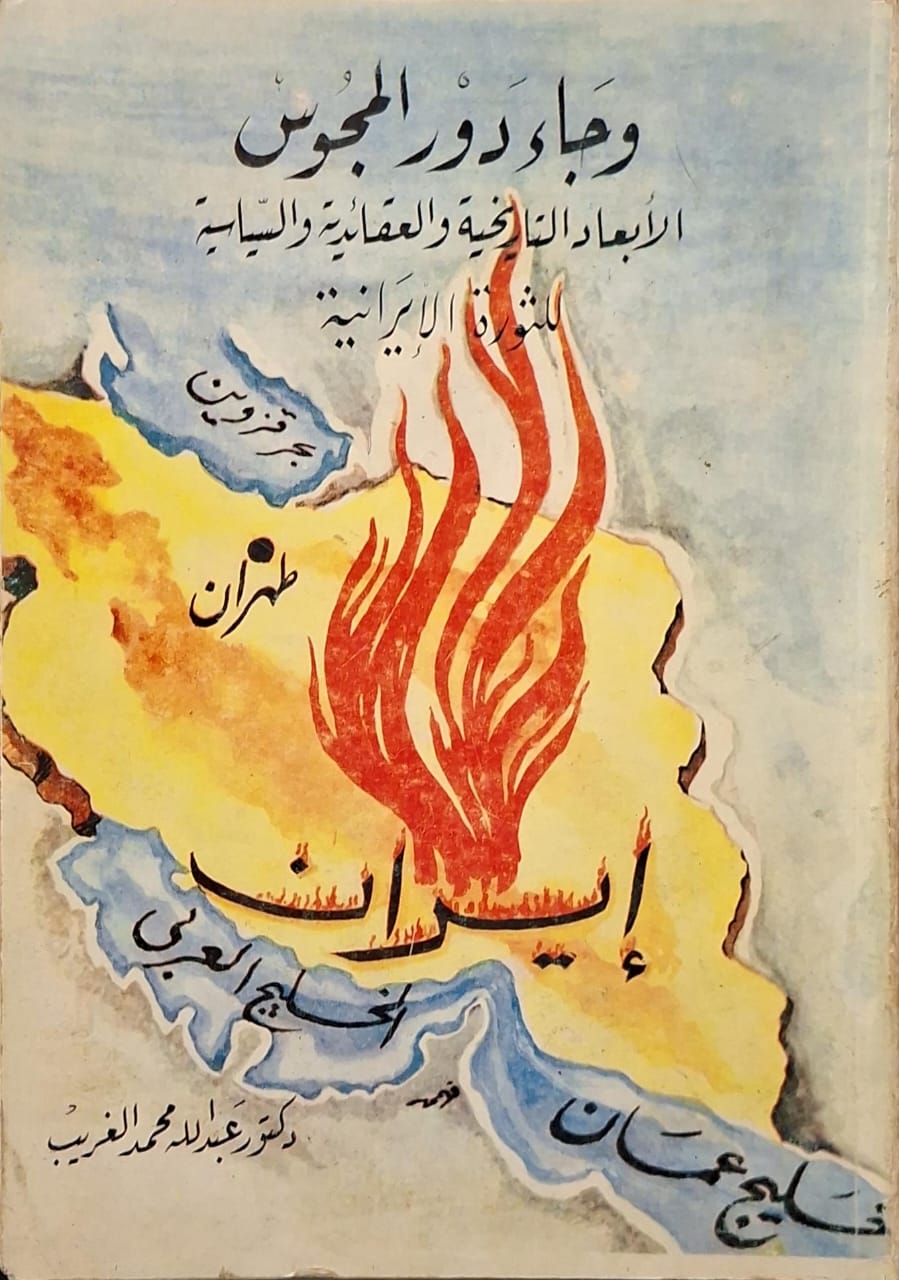 وَجَاء دَوْر المجُوس
الأبعاد التاريخية والعقائدية والسّياسية
للثورة الإيرَانية
بحر قزوين
طهران
إيران
الخليج العربي
خليج عمان
دكتور عَبدالله محمد الغريبْ